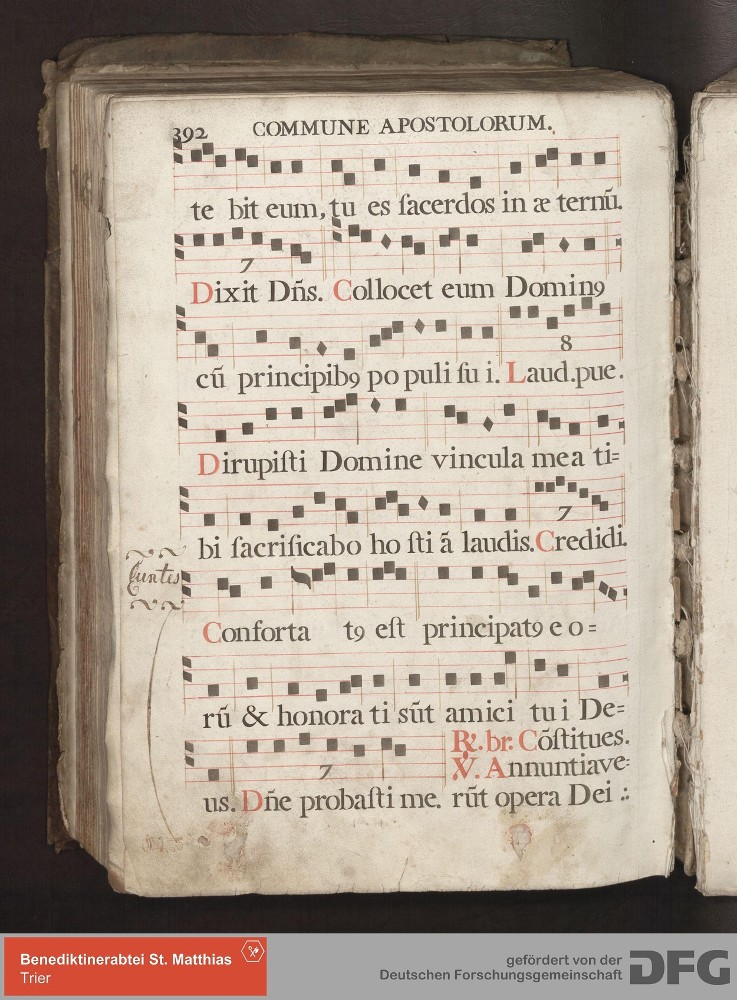 392 COMMUNE APOSTOLORUM.
te bit eum, tu es ſacerdos in æ ternũ.
7
Dixit Dñs. Collocet eum Domin9
8
cũ principib9 po puli ſu i. Laud.pue.
Dirupiſti Domine vincula mea ti=
7
bi ſacrificabo ho ſti ã laudis. Credidi.
Euntes
Conforta t9 eſt principat9 e o=
rũ & honora ti sũt amici tu i De=
7
℟. br. Cõſtitues.
℣. Annuntiave=
us. Dñe probaſti me. rũt opera Dei :.
Benediktinerabtei St. Matthias
Trier
gefördert von der
Deutschen Forschungsgemeinschaft
DFG